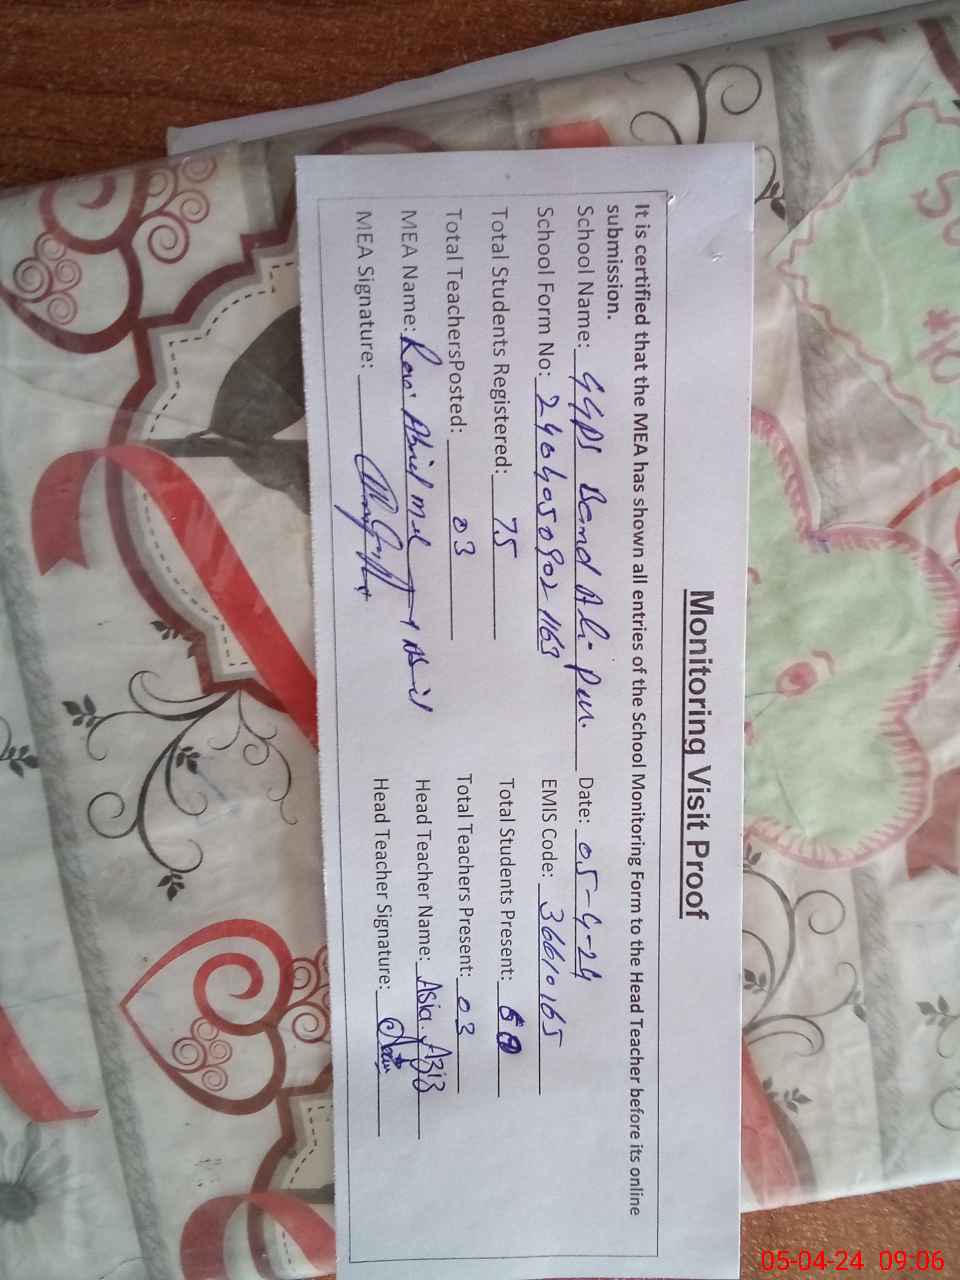 Monitoring Visit Proof
It is certified that the MEA has shown all entries of the School Monitoring Form to the Head Teacher before its online
submission.
School Name: GGPS Band Ali Pur. Date: 05-4-24
School Form No: 2404050902 1163 EMIS Code: 36610165
Total Students Registered: 75 Total Students Present:
Total TeachersPosted: 03 Total Teachers Present: 03
MEA Name: Head Teacher Name: Asia Aziz
MEA Signature: Head Teacher Signature:
50
*10
05-04-24 09:06